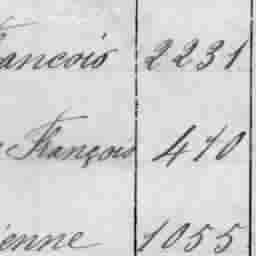 ancois 2231
François 410
ienne 1055